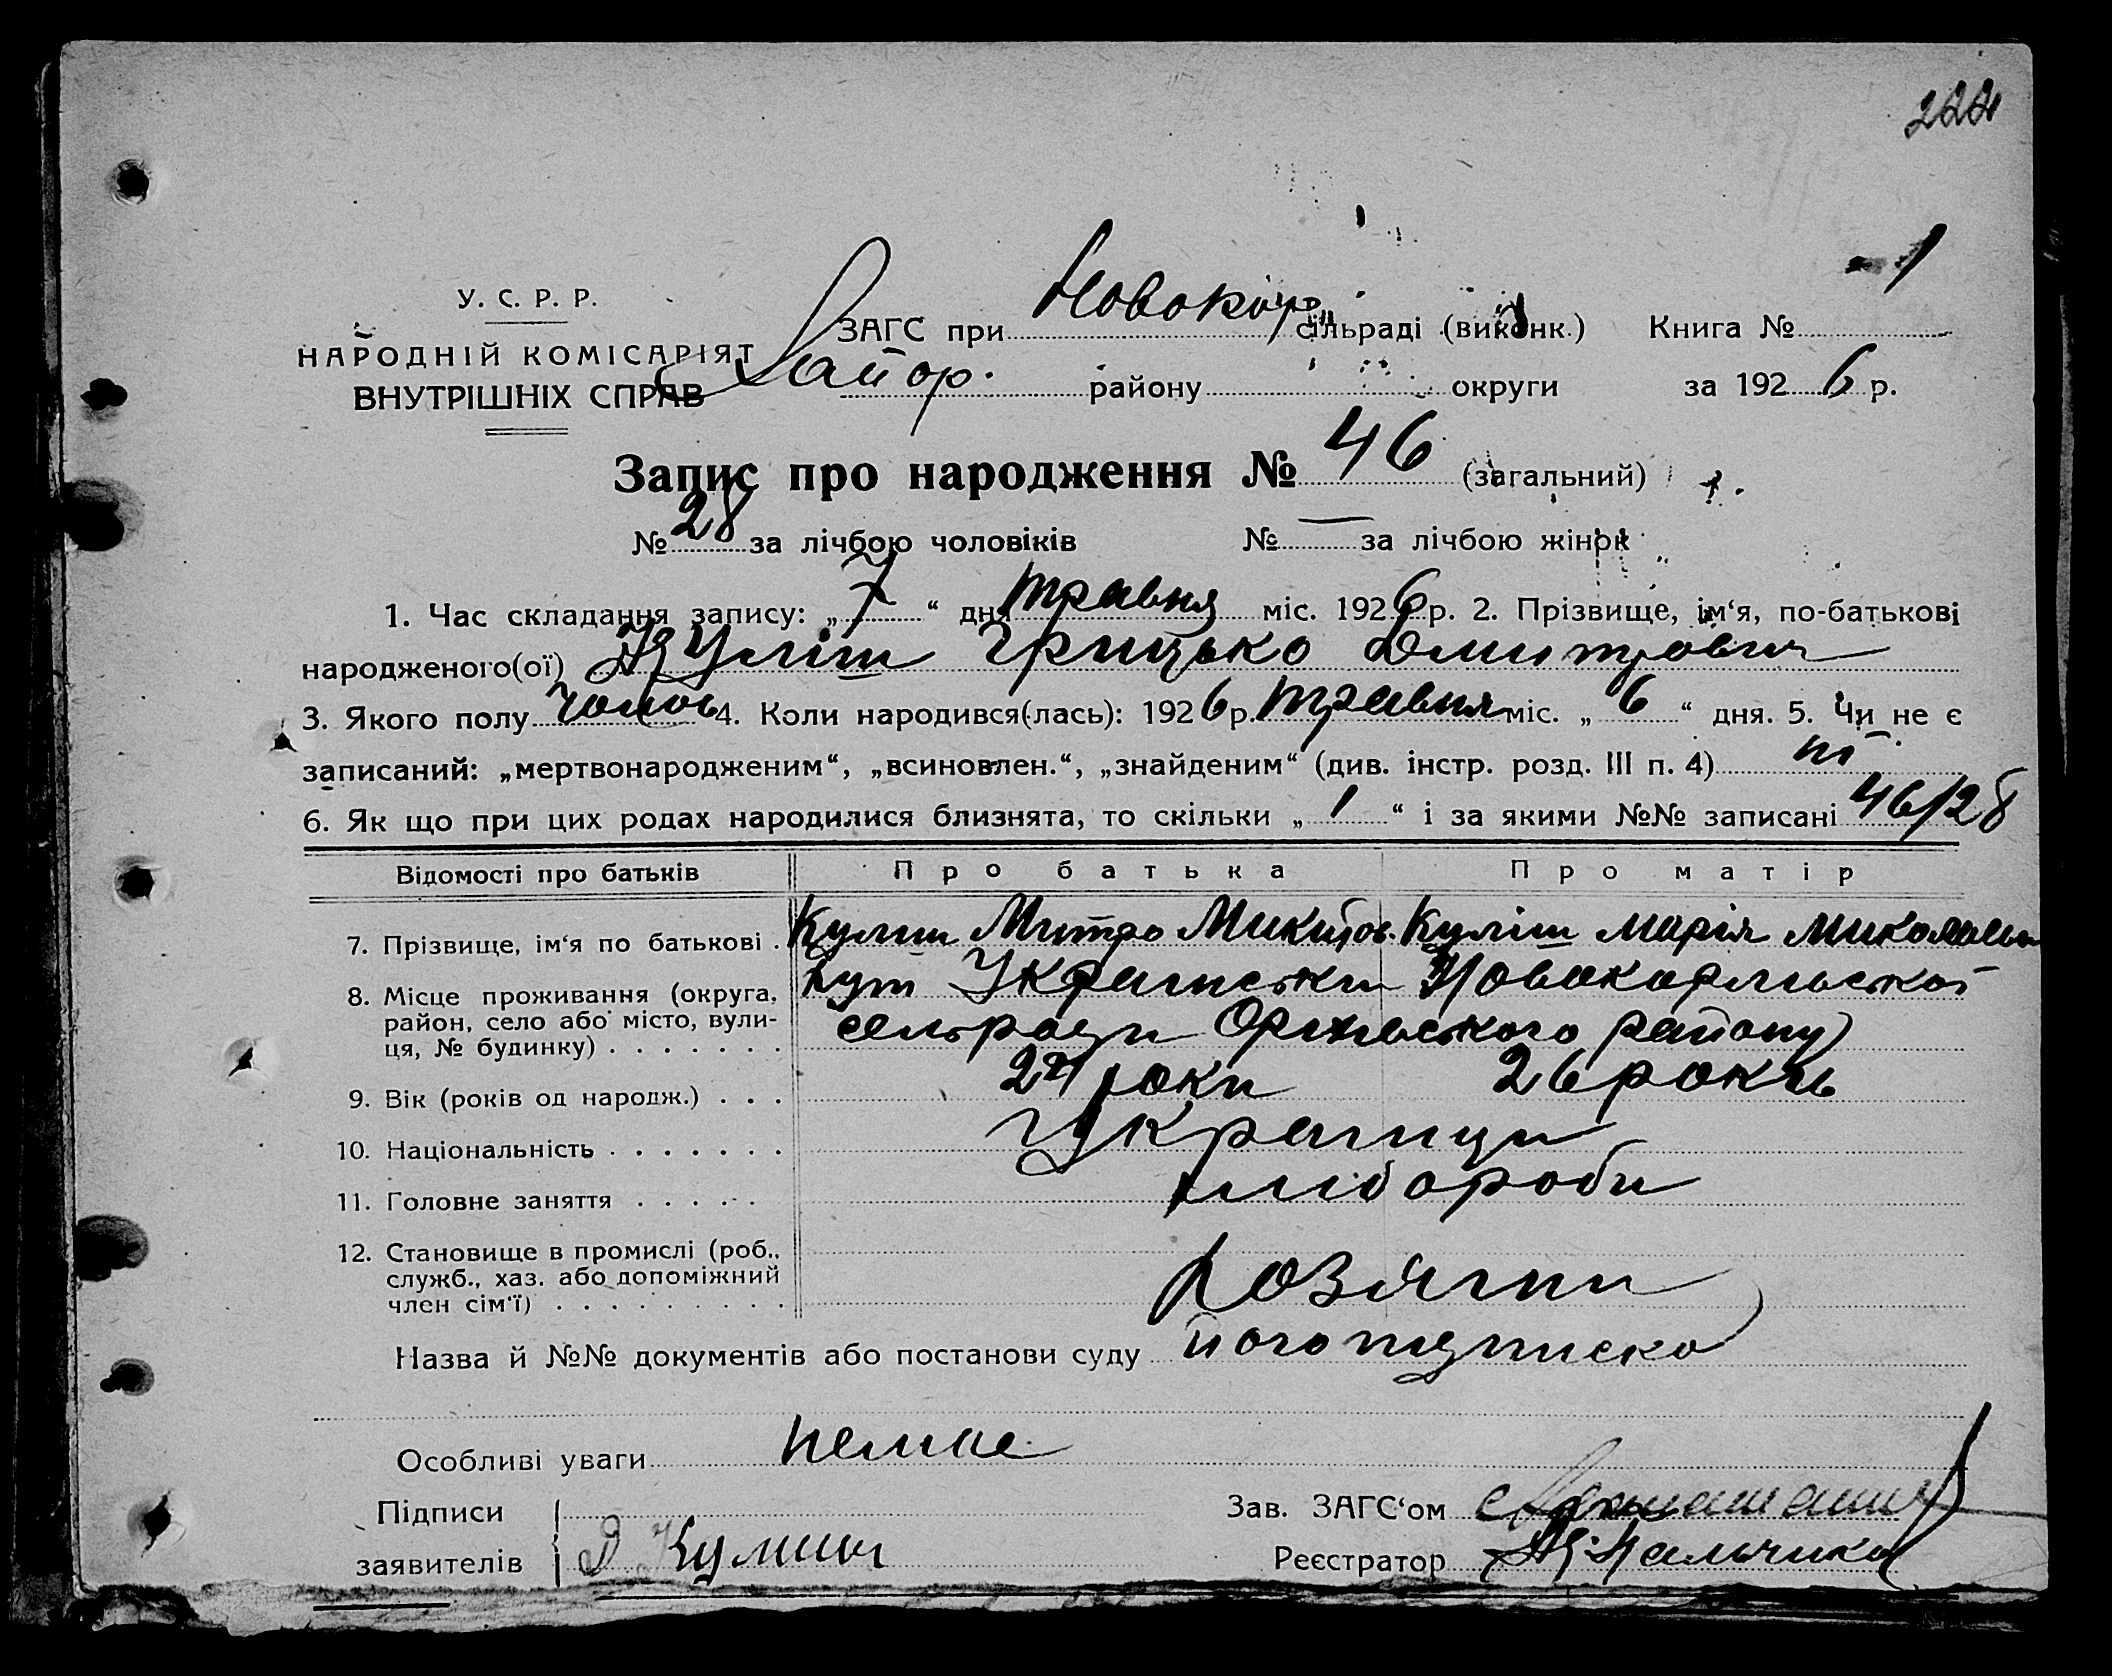 222
У. С. Р. Р.
НАРОДНІЙ КОМІСАРІЯТ
ВНУТРІШНІХ СПРАВ
ЗАГС при сільраді (виконк.) Книга № 1
району округи за 1926 р.
Запис про народження № 46 (загальний)
№ 28 за лічбою чоловіків № — за лічбою жінок
1. Час складання запису: „7“ дня травня міс. 1926 р. 2. Прізвище, ім‘я, по-батькові
народженого(ої) Куліш Грицько Дмитрович
3. Якого полу чолов 4. Коли народився(лась): 1926 р. травня міс. „6“ дня. 5. Чи не є
записаний: „мертвонародженим“, „всиновлен.“, „знайденим“ (див. інстр. розд. III п. 4) ні
6. Як що при цих родах народилися близнята, то скільки „1“ і за якими №№ записані 46/28
Відомості про батьків Про батька Про матір
7. Прізвище, ім‘я по батькові . Кулиш Митро Микитов. Куліш Марія
8. Місце проживання (округа, хут Украински
район, село або місто, вули- сельради Оріхівського району
ця, № будинку) . . . . . . .
9. Вік (років од народж.) . . . роки 26 років
10. Національність . . . . . . . Украинци
11. Головне заняття . . . . . хлібороби
12. Становище в промислі (роб.,
служб., хаз. або допоміжний хозяини
член сім‘ї) . . . . . . . . .
Назва й №№ документів або постанови суду його підписка
Особливі уваги немає
Підписи Зав. ЗАГС‘ом
заявителів Д Кулиш Реєстратор